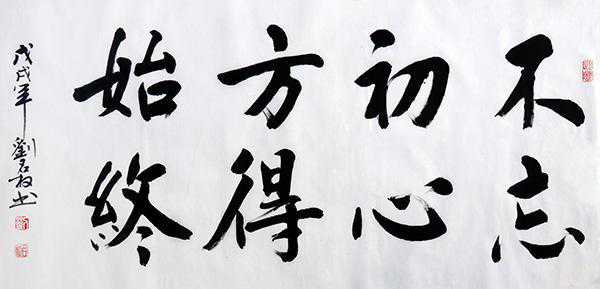 不忘
初心
方得
始終
戊戌年 劉 书